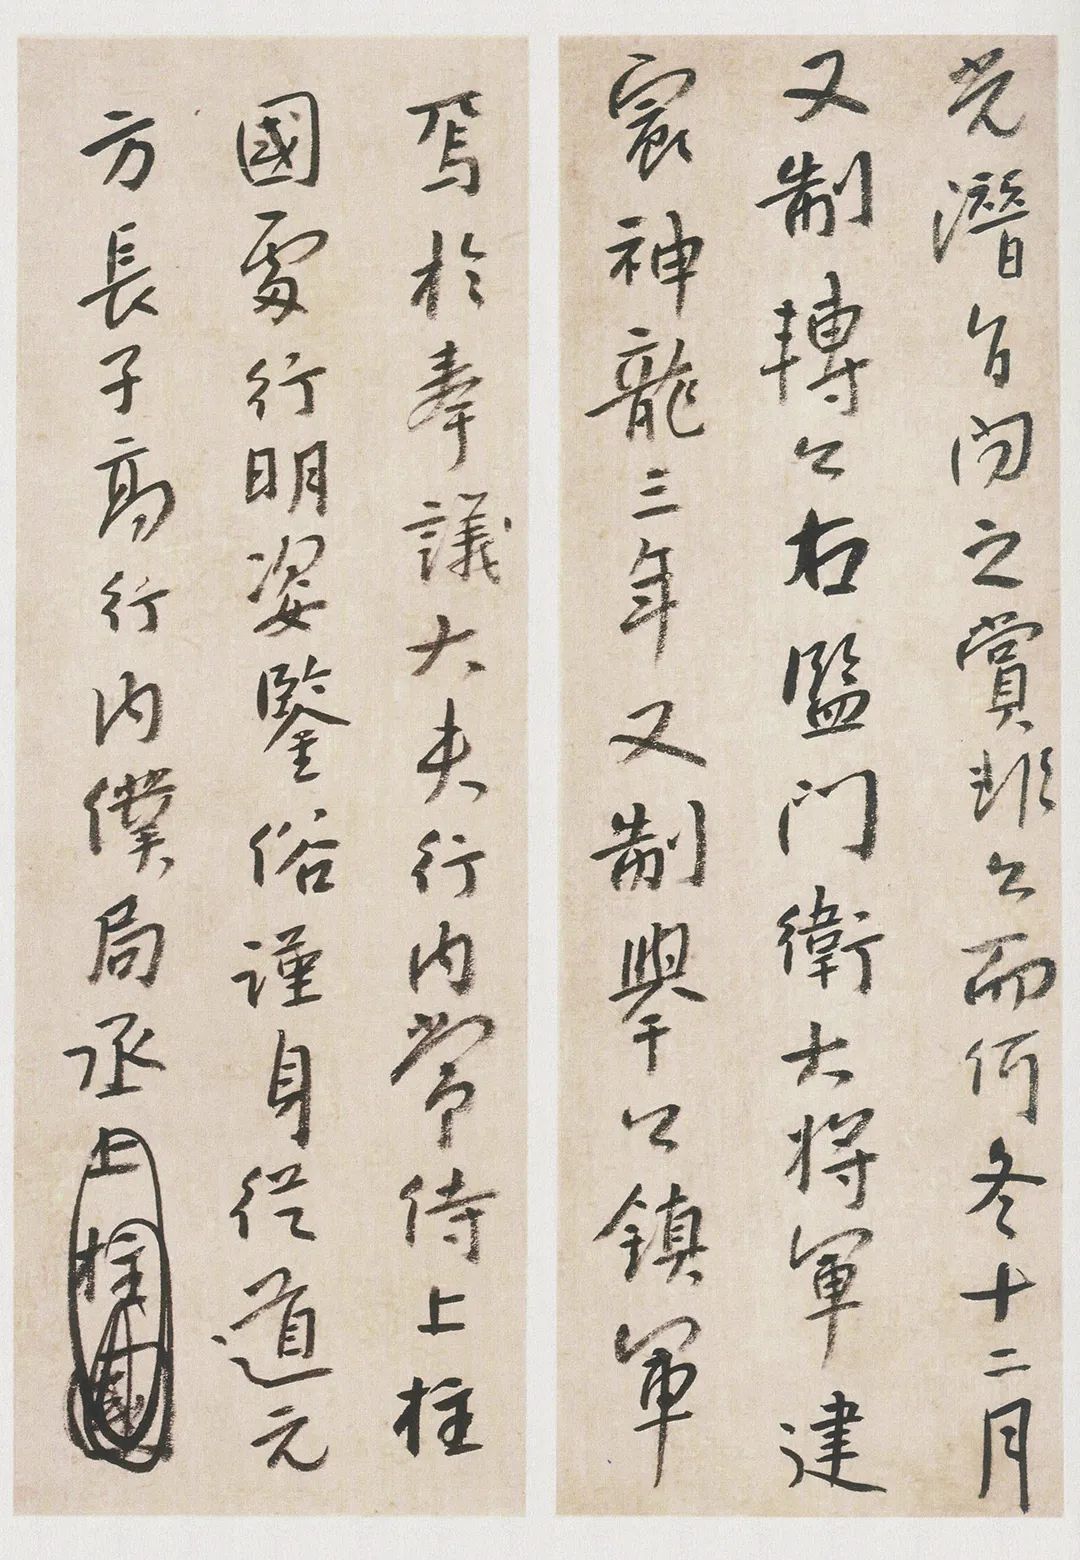 光潛白問之賞非公而何冬十二月
又制轉公右監門衛大將軍建
宸神龍三年又制舉公鎮軍
焉於奉議大夫行內常侍上柱
國處行明姿鑒俗謹身從道元
方長子高行內僕局丞上柱國